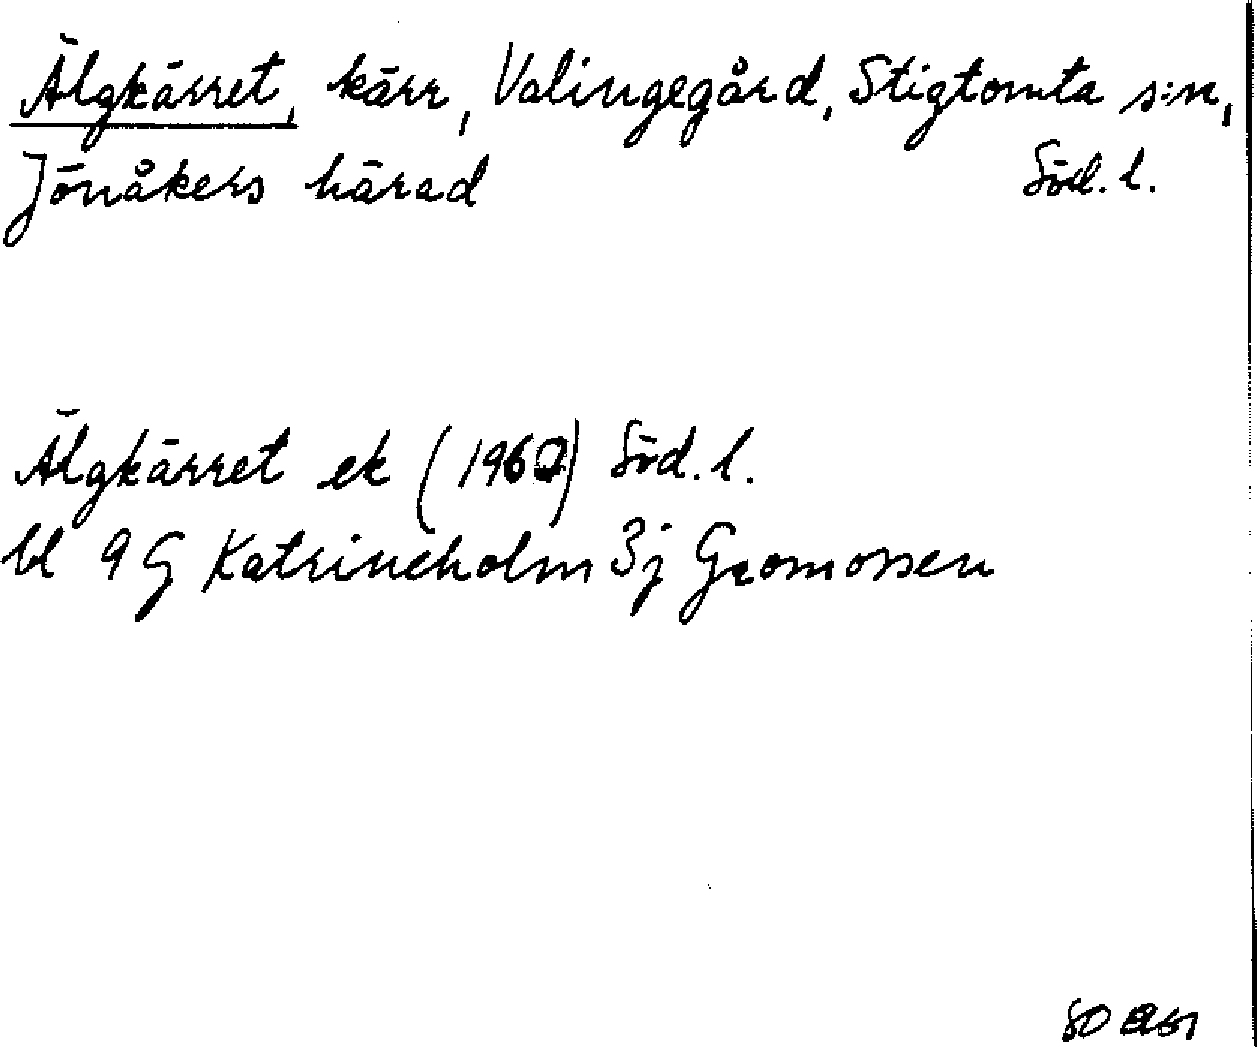 Älgkärret, kärr, Valingegård, Stigtomta s:n,
Jönåkers härad Söd. l.
Älgkärret ek (1962) Söd. l.
bl 9 G Katrineholm 3j Gromossen